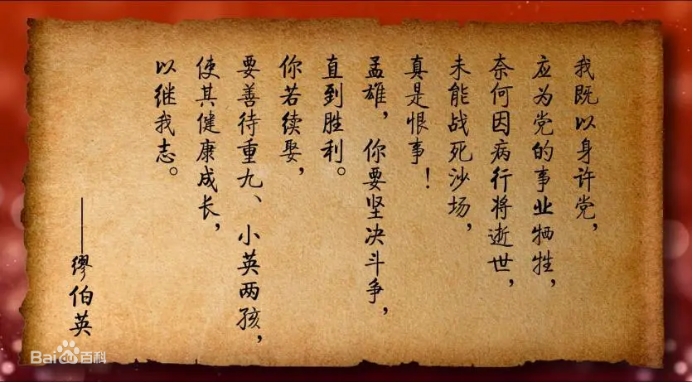 我既以身许党，
应为党的事业牺牲，
奈何因病行将逝世，
未能战死沙场，
真是恨事！
孟雄，你要坚决斗争，
直到胜利。
你若续娶，
要善待重九、小英两孩，
使其健康成长，
以继我志。
——缪伯英
Bai百科